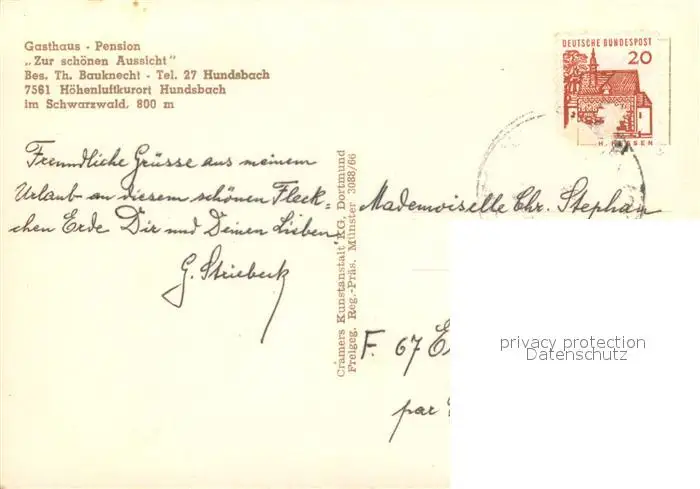 Gasthaus - Pension
„Zur schönen Aussicht"
Bes. Th. Bauknecht - Tel. 27 Hundsbach
7561 Höhenluftkurort Hundsbach
im Schwarzwald, 800 m
DEUTSCHE BUNDESPOST
20
Freundliche Grüsse aus meinem
Urlaub an diesem schönen Fleck=
chen Erde Dir und Deinen Lieben
G. Striebeck
Cramers Kunstanstalt KG, Dortmund
Freigeg. Reg.-Präs. Münster 3088/66
Mademoiselle Chr. Stephan
F. 67
par
privacy protection
Datenschutz